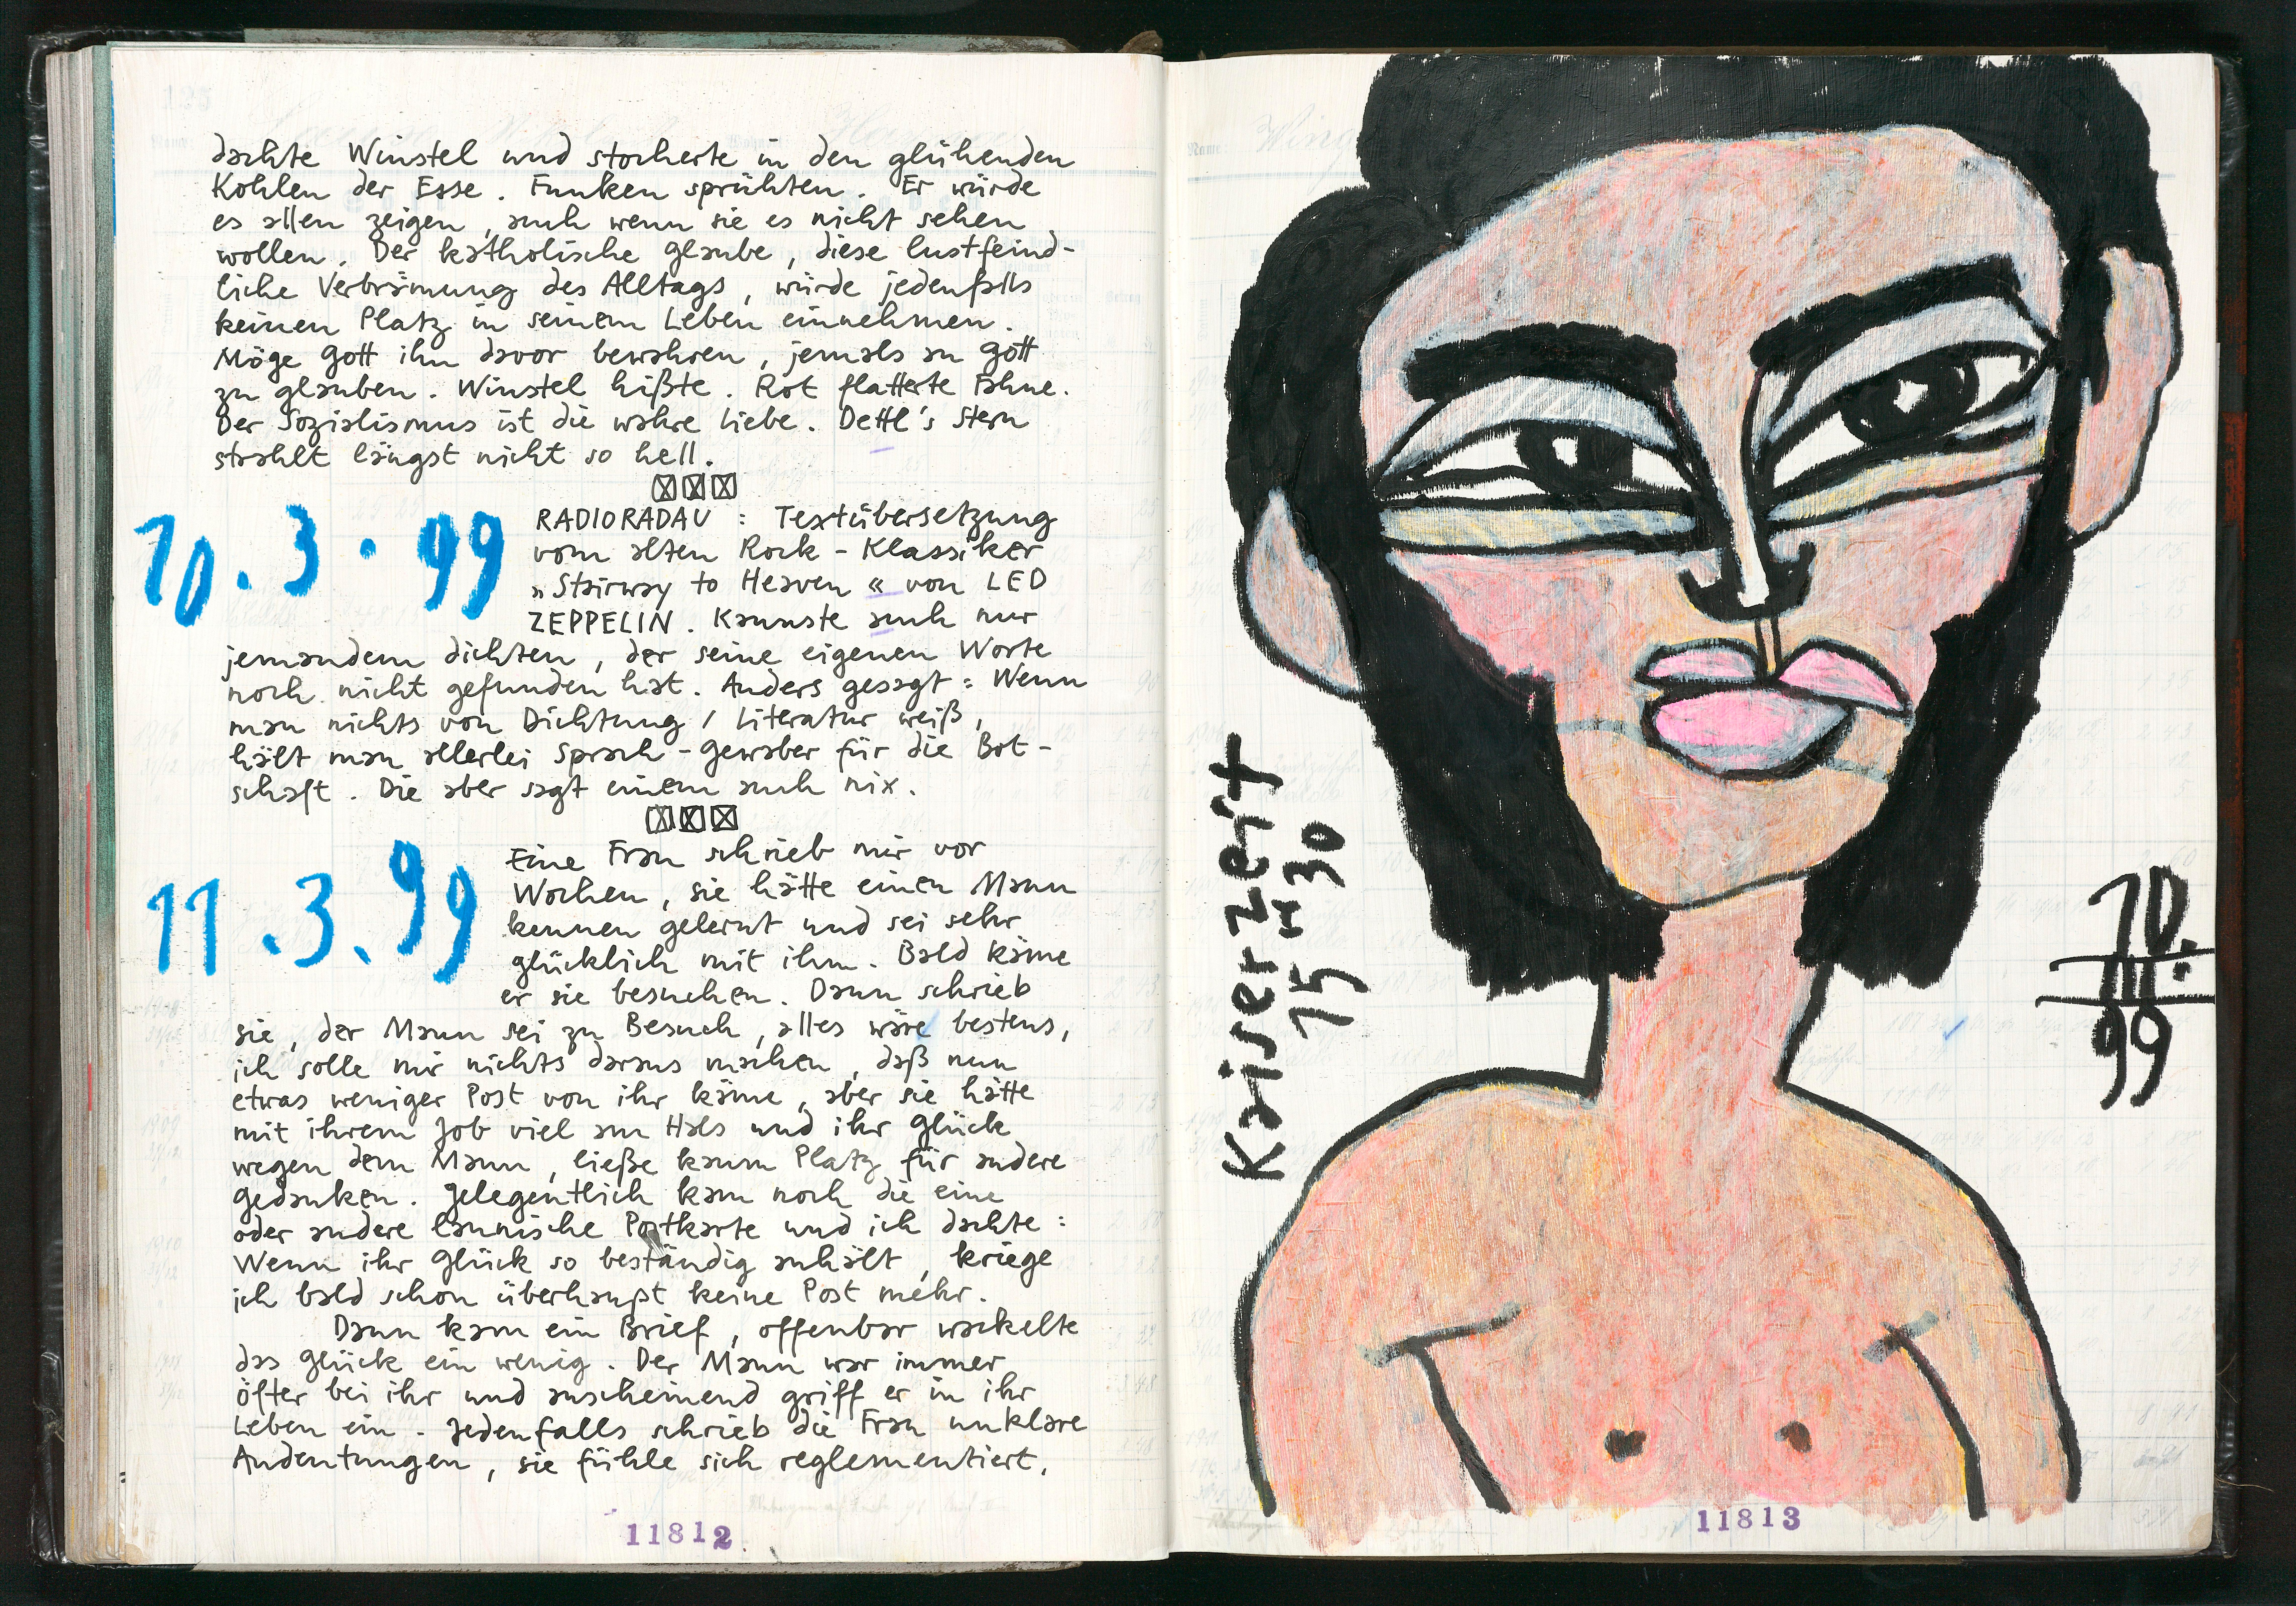 dachte Winstel und stocherte in den glühenden
Kohlen der Esse. Funken sprühten. Er würde
es allen zeigen, auch wenn sie es nicht sehen
wollen. Der katholische Glaube, diese lustfeind-
liche Verbrämung des Alltags, würde jedenfalls
keinen Platz in seinem Leben einnehmen.
Möge Gott ihn davor bewahren, jemals an Gott
zu glauben. Winstel hißte. Rot flatterte Fahne.
Der Sozialismus ist die wahre Liebe. Dettl's Stern
strahlt längst nicht so hell.
10.3.99
RADIORADAU : Textübersetzung
vom alten Rock-Klassiker
»Stairway to Heaven« von LED
ZEPPELIN. Kannste auch nur
jemandem dichten, der seine eigenen Worte
noch nicht gefunden hat. Anders gesagt: Wenn
man nichts von Dichtung / Literatur weiß,
hält man allerlei Sprach-Gewaber für die Bot-
schaft. Die aber sagt einem auch nix.
11.3.99
Eine Frau schrieb mir vor
Wochen, sie hätte einen Mann
kennen gelernt und sei sehr
glücklich mit ihm. Bald käme
er sie besuchen. Dann schrieb
sie, der Mann sei zu Besuch, alles wäre bestens,
ich solle mir nichts daraus machen, daß nun
etwas weniger Post von ihr käme, aber sie hätte
mit ihrem Job viel am Hals und ihr Glück
wegen dem Mann, ließe kaum Platz für andere
Gedanken. Gelegentlich kam noch die eine
oder andere launische Postkarte und ich dachte:
Wenn ihr Glück so beständig anhält, kriege
ich bald schon überhaupt keine Post mehr.
Dann kam ein Brief, offenbar wackelte
das Glück ein wenig. Der Mann war immer
öfter bei ihr und anscheinend griff er in ihr
Leben ein. Jedenfalls schrieb die Frau unklare
Andeutungen, sie fühle sich reglementiert,
11812
Kaiserzeit
15 H 30
10.
III.
99
11813